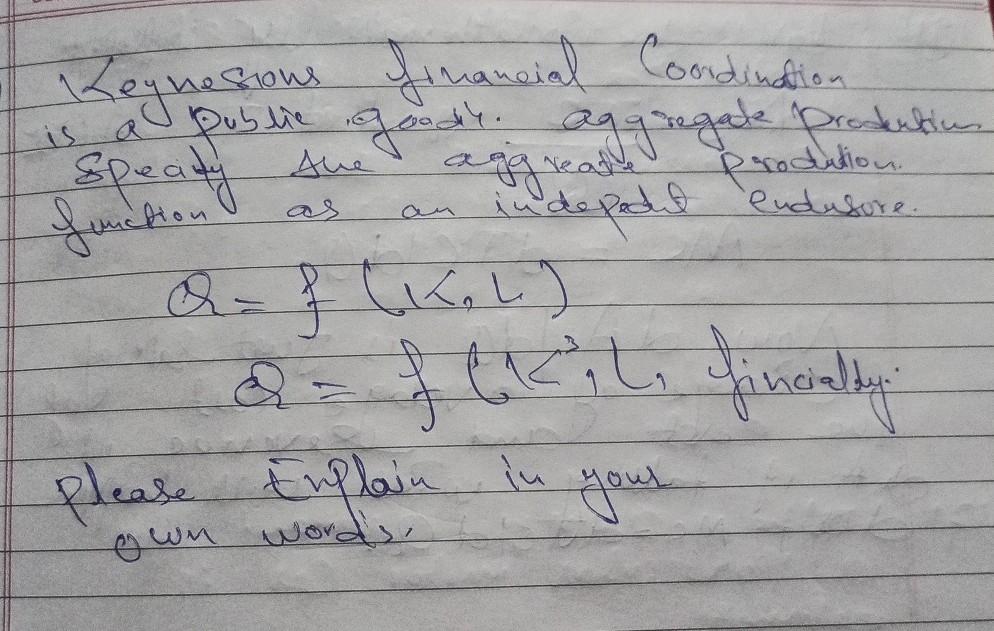 Keynesions financial Coordination
is a public good's. aggregate production
Specify the aggreate production.
function as an indepedt
Q = f (K, L)
Q = f (K³, L, fincialty.
please Explain in your
own words.